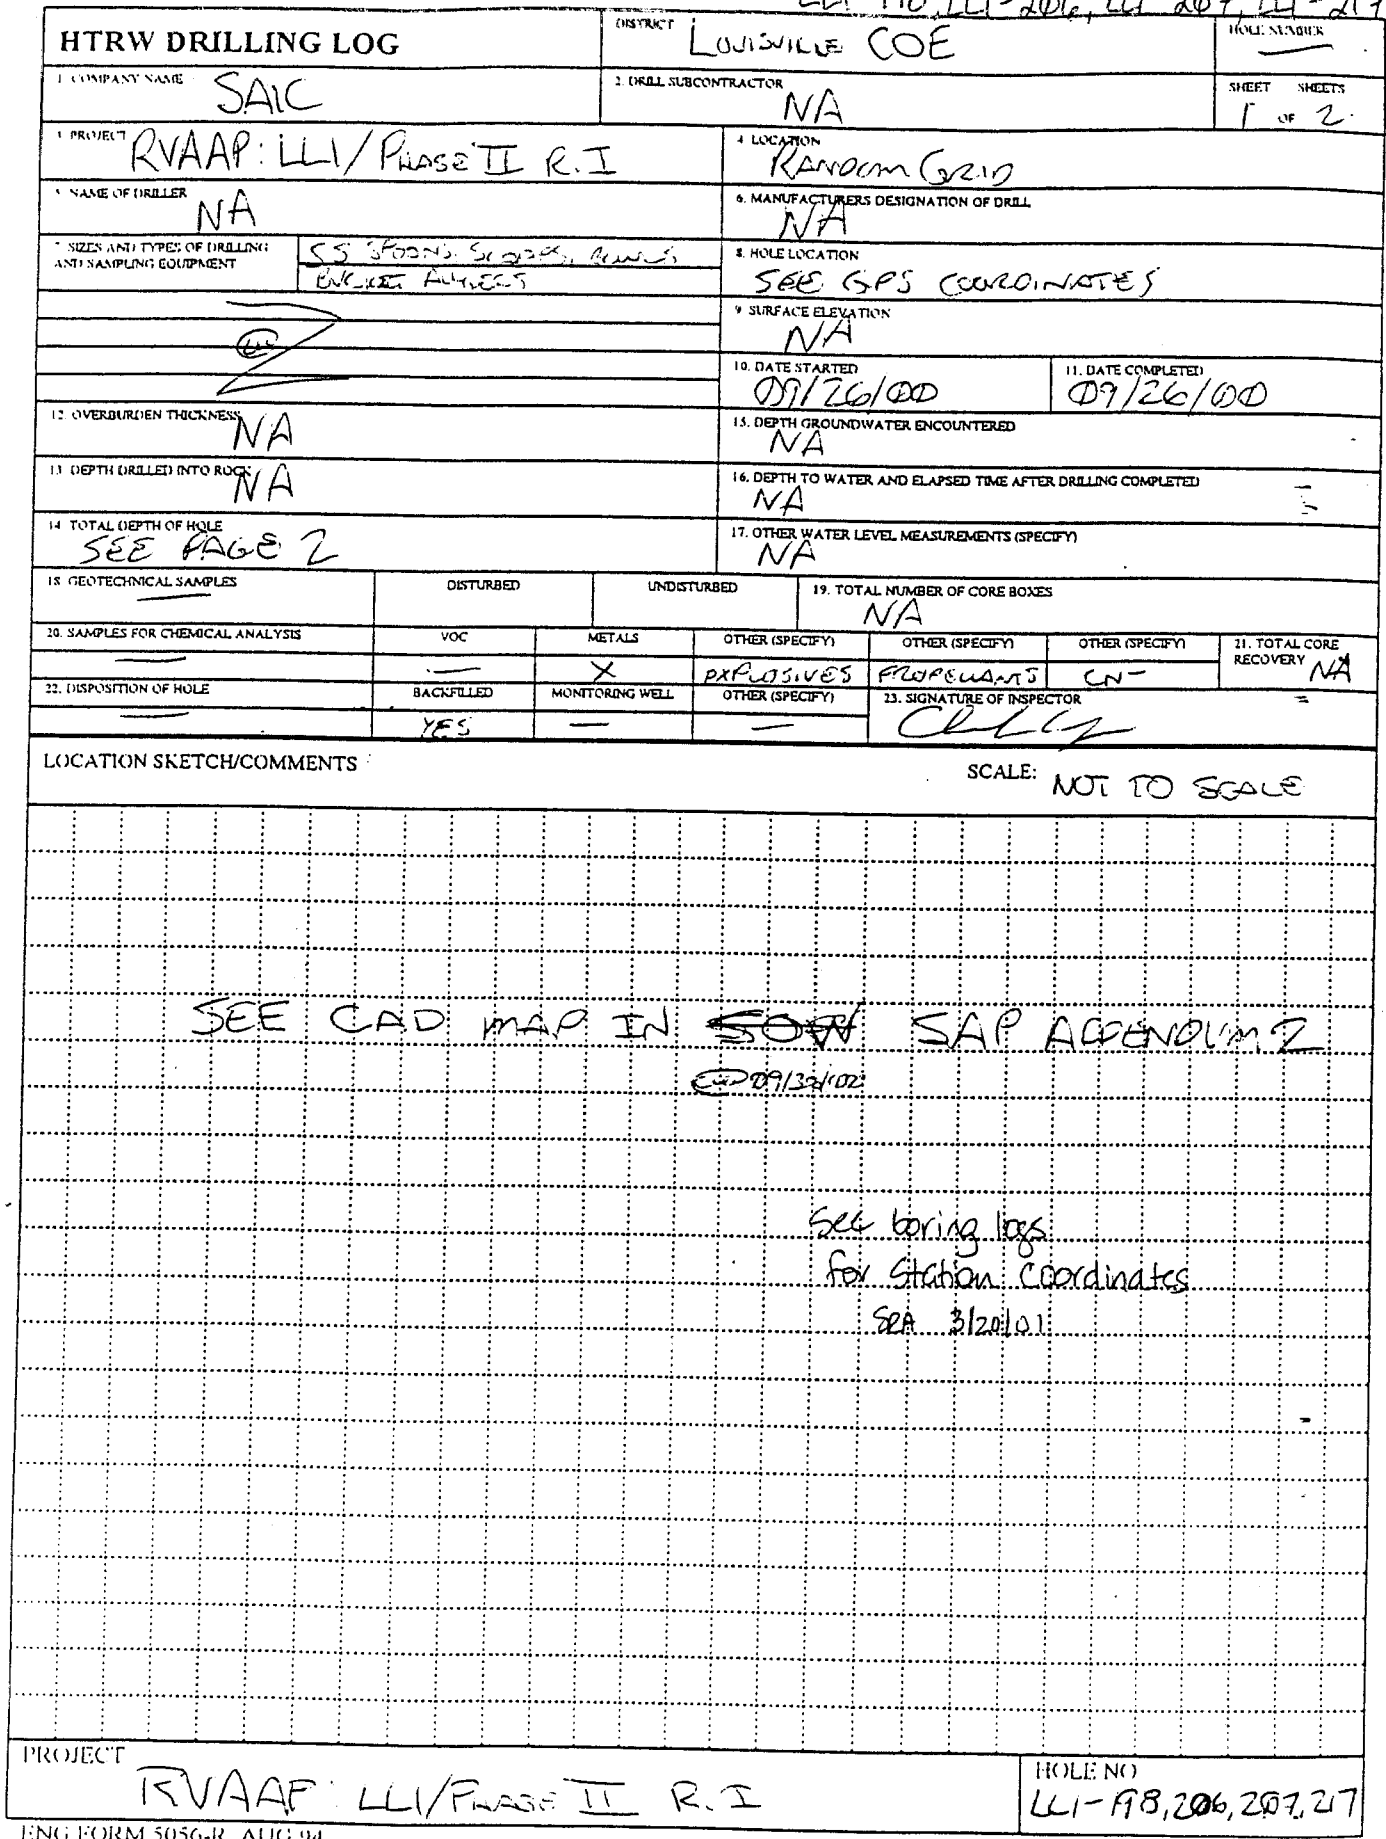 LL1-206, LL1-207, LL1-217
HTRW DRILLING LOG
DISTRICT
LOUISVILLE COE
HOLE NUMBER
—
1. COMPANY NAME
SAIC
2. DRILL SUBCONTRACTOR
NA
SHEET SHEETS
1 OF 2
3. PROJECT
RVAAP: LL1/PHASE II R.I
4. LOCATION
RANDOM GRID
5. NAME OF DRILLER
NA
6. MANUFACTURERS DESIGNATION OF DRILL
NA
7. SIZES AND TYPES OF DRILLING
AND SAMPLING EQUIPMENT
SS SPOONS, SCOOPS, BOWLS
BUCKET AUGERS
8. HOLE LOCATION
SEE GPS COORDINATES
9. SURFACE ELEVATION
NA
10. DATE STARTED
09/26/00
11. DATE COMPLETED
09/26/00
12. OVERBURDEN THICKNESS
NA
15. DEPTH GROUNDWATER ENCOUNTERED
NA
13. DEPTH DRILLED INTO ROCK
NA
16. DEPTH TO WATER AND ELAPSED TIME AFTER DRILLING COMPLETED
NA
14. TOTAL DEPTH OF HOLE
SEE PAGE 2
17. OTHER WATER LEVEL MEASUREMENTS (SPECIFY)
NA
18. GEOTECHNICAL SAMPLES
—
DISTURBED
UNDISTURBED
19. TOTAL NUMBER OF CORE BOXES
NA
20. SAMPLES FOR CHEMICAL ANALYSIS
VOC
METALS
OTHER (SPECIFY)
OTHER (SPECIFY)
OTHER (SPECIFY)
21. TOTAL CORE
RECOVERY NA
— — X EXPLOSIVES PROPELLANTS CN-
22. DISPOSITION OF HOLE
BACKFILLED
MONITORING WELL
OTHER (SPECIFY)
23. SIGNATURE OF INSPECTOR
— YES — —
LOCATION SKETCH/COMMENTS
SCALE: NOT TO SCALE
SEE CAD MAP IN SOW SAP ADDENDUM 2
See boring logs
for Station Coordinates
SRA 3/20/01
PROJECT
RVAAP: LL1/PHASE II R.I
HOLE NO
LL1-198,206,207,217
ENG FORM 5056-R, AUG 94